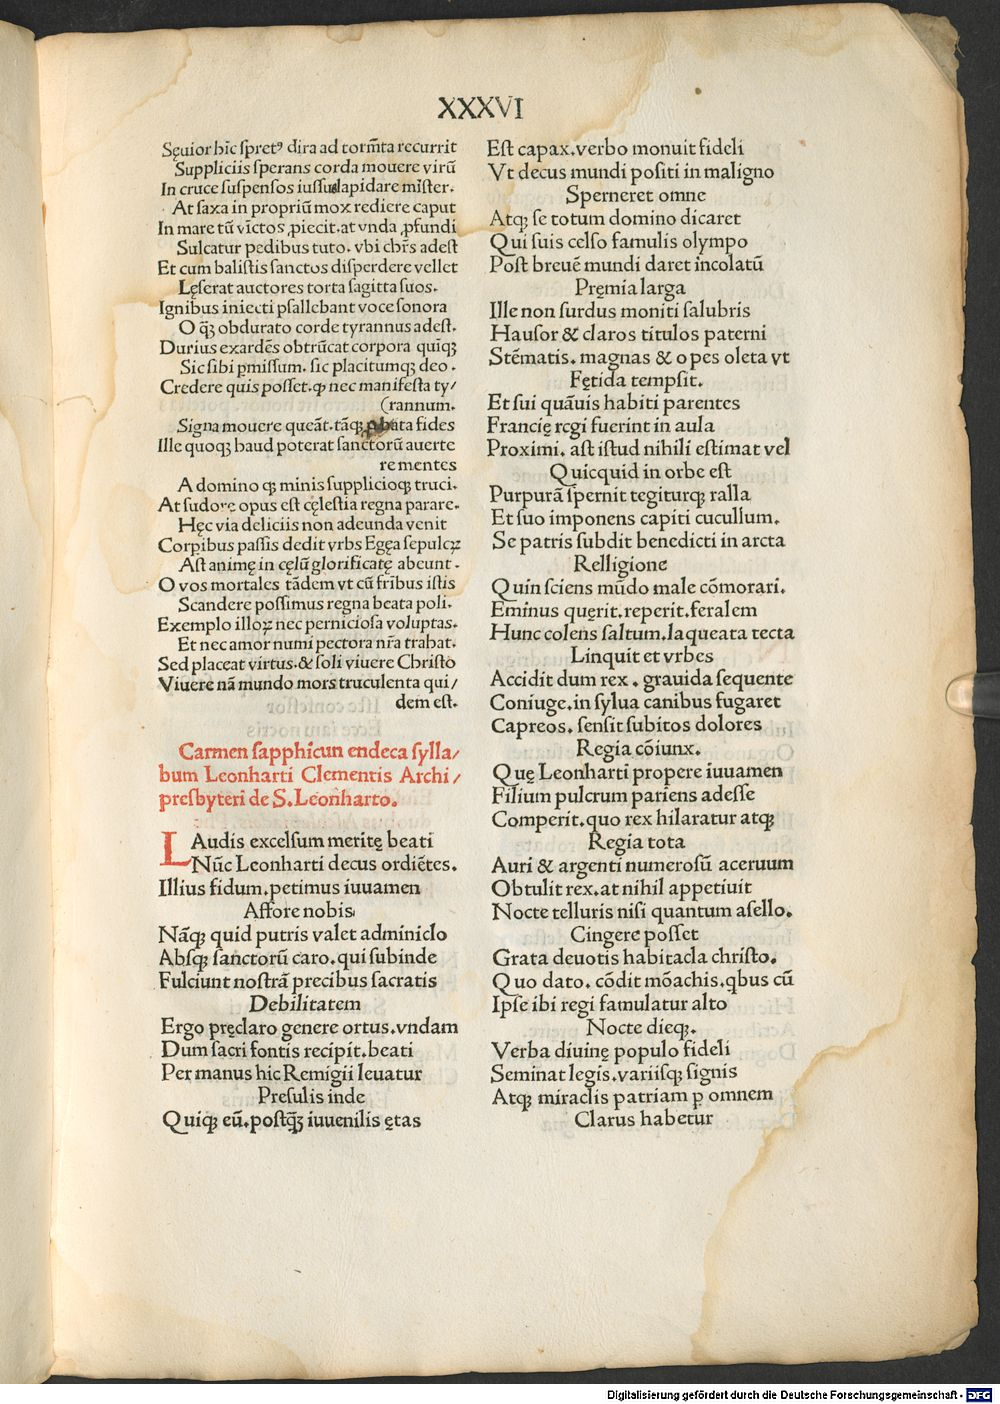 XXXVI
Sęuior hic spretꝰ dira ad torm̄ta recurrit
Suppliciis sperans corda mouere virū
In cruce suspensos iussu lapidare mister.
At saxa in propriū mox rediere caput
In mare tū vīctos ꝓiecit. at vnda ꝓfundi
Sulcatur pedibus tuto. vbi chr̄s adest
Et cum balistis sanctos disperdere vellet
Lęserat auctores torta sagitta suos.
Ignibus iniecti psallebant voce sonora
O q̄ꝫ obdurato corde tyrannus adest.
Durius exardēs obtrūcat corpora quīqꝫ
Sic sibi ꝑmissum. sic placitumqꝫ deo.
Credere quis posset. ꝙ nec manifesta ty/
(rannum.
Signa mouere queāt. tāqꝫ ꝓbata fides
Ille quoqꝫ haud poterat sanctorū auerte
re mentes
A domino qꝫ minis supplicioqꝫ truci.
At sudore opus est cęlestia regna parare.
Hęc via deliciis non adeunda venit
Corꝑibus passis dedit vrbs Egęa sepulcꝝ
Ast animę in cęlū glorificatę abeunt.
O vos mortales tādem vt cū fr̄ibus istis
Scandere possimus regna beata poli.
Exemplo illoꝝ nec perniciosa voluptas.
Et nec amor numi pectora nr̄a trahat.
Sed placeat virtus. & soli viuere Christo
Viuere nā mundo mors truculenta qui/
dem est.
Carmen sapphicun endeca sylla/
bum Leonharti Clementis Archi/
presbyteri de S. Leonharto.
LAudis excelsum meritę beati
Nūc Leonharti decus ordiētes.
Illius fidum. petimus iuuamen
Affore nobis
Nāqꝫ quid putris valet adminiclo
Absqꝫ sanctorū caro. qui subinde
Fulciunt nostrā precibus sacratis
Debilitatem
Ergo pręclaro genere ortus. vndam
Dum sacri fontis recipit. beati
Per manus hic Remigii leuatur
Presulis inde
Quiqꝫ eū. postq̄ꝫ iuuenilis ętas
Est capax. verbo monuit fideli
Vt decus mundi positi in maligno
Sperneret omne
Atqꝫ se totum domino dicaret
Qui suis celso famulis olympo
Post breuē mundi daret incolatū
Pręmia larga
Ille non surdus moniti salubris
Hausor & claros titulos paterni
Stēmatis. magnas & opes oleta vt
Fętida tempsit.
Et sui quāuis habiti parentes
Francię regi fuerint in aula
Proximi. ast istud nihili estimat vel
Quicquid in orbe est
Purpurā spernit tegiturqꝫ ralla
Et suo imponens capiti cucullum.
Se patris subdit benedicti in arcta
Relligione
Quin sciens mūdo male cōmorari.
Eminus quęrit. reperit. feralem
Hunc colens saltum. laqueata tecta
Linquit et vrbes
Accidit dum rex. grauida sequente
Coniuge. in sylua canibus fugaret
Capreos. sensit subitos dolores
Regia cōiunx.
Quę Leonharti propere iuuamen
Filium pulcrum pariens adesse
Comperit. quo rex hilaratur atqꝫ
Regia tota
Auri & argenti numerosū aceruum
Obtulit rex. at nihil appetiuit
Nocte telluris nisi quantum asello.
Cingere posset
Grata deuotis habitacla christo.
Quo dato. cōdit mōachis. qbus cū
Ipse ibi regi famulatur alto
Nocte dieqꝫ.
Verba diuinę populo fideli
Seminat legis. variisqꝫ signis
Atqꝫ miraclis patriam ꝑ omnem
Clarus habetur
Digitalisierung gefördert durch die Deutsche Forschungsgemeinschaft - DFG